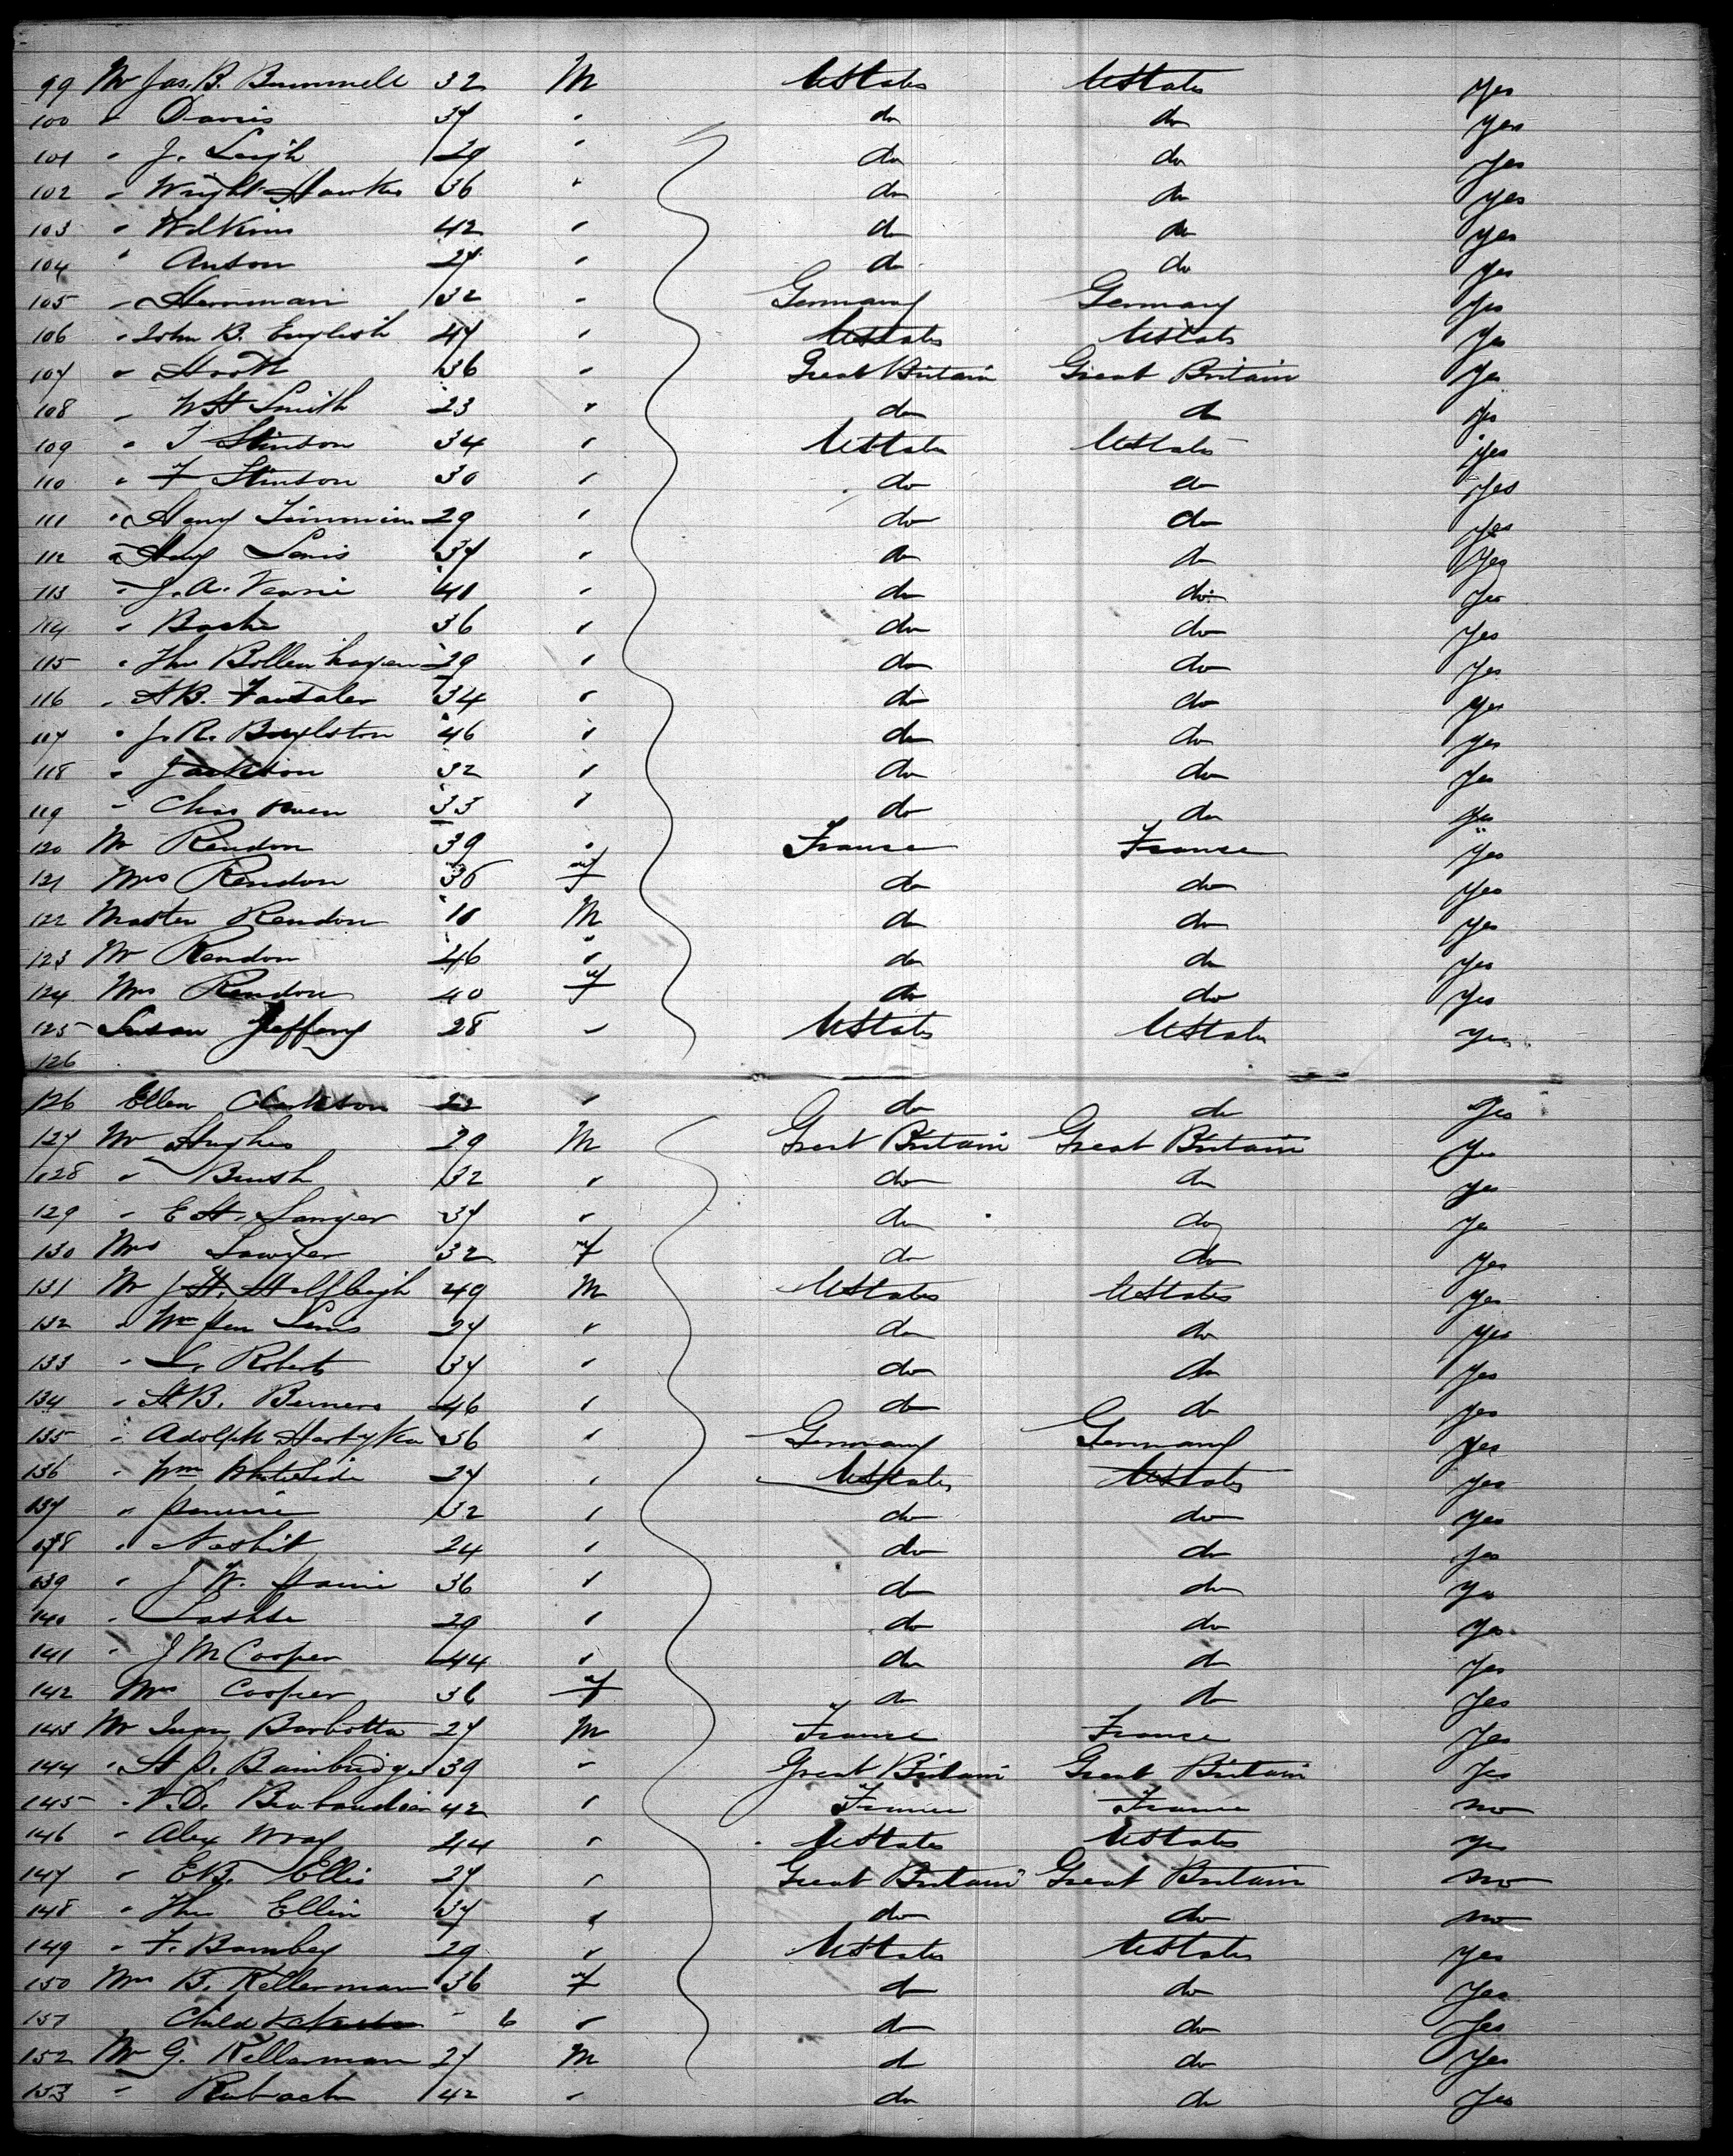 99 Mr Jas. B. Bummell 32 M UStates UStates Yes
100 " Davis 37 " do do yes
101 " J. Leigh 29 " do do yes
102 " Wright Hawkes 36 " do do yes
103 " Wilkins 42 " do do yes
104 " Anson 27 " do do yes
105 " Herrmann 32 " Germany Germany Yes
106 " John B. English 47 " UStates UStates Yes
107 " 36 " Great Britain Great Britain Yes
108 " WH Smith 23 " do do yes
109 " T Stinson 34 " UStates UStates yes
110 " F Stinson 30 " do do yes
111 " Henry 29 " do do yes
112 " Henry Lewis 37 " do do Yes
113 " J. A. 40 " do do Yes
114 " 36 " do do Yes
115 " Thos Bollenhagen 29 " do do Yes
116 " A B. 34 " do do yes
117 " J. R. Boylston 46 " do do yes
118 " Jackson 32 " do do yes
119 " Chas Owen 33 " do do yes
120 Mr Rendon 39 " France France Yes
121 Mrs Rendon 36 f do do Yes
122 Master Rendon 10 M do do Yes
123 Mr Rendon 46 " do do Yes
124 Mrs Rendon 40 f do do Yes
125 Susan Jeffery 28 " UStates UStates yes
126
126 Ellen Clarkson 22 " do do Yes
127 Mr Hughes 29 M Great Britain Great Britain Yes
128 " Brush 32 " do do yes
129 " E H. Sawyer 37 " do do Ye
130 Mrs Sawyer 32 f do do Yes
131 Mr J H. Halfleigh 49 M UStates UStates yes
132 " Wm Lewis 27 " do do yes
133 " L. Roberts 37 " do do Yes
134 " H B. Berners 46 " do do yes
135 " Adolph 36 " Germany Germany Yes
136 " Wm Whiteside 27 " UStates UStates Yes
137 " 32 " do do yes
138 " Nesbit 24 " do do yes
139 " J W. 36 " do do yes
140 " 29 " do do yes
141 " J M Cooper 44 " do do Yes
142 Mrs Cooper 36 f do do Yes
143 Mr Juan Barbotta 27 M France France Yes
144 " H J. Bainbridge 39 " Great Britain Great Britain Yes
145 " V. D. 42 " France France no
146 " Alex Wray 44 " UStates UStates yes
147 " EB. Ellis 27 " Great Britain Great Britain no
148 " Thos Ellin 37 " do do no
149 " F. Bambey 29 " UStates UStates Yes
150 Mrs B. Kellerman 36 f do do Yes
151 Child 6 " do do Yes
152 Mr G. Kellerman 27 M do do Yes
153 " Rubach 42 " do do Yes